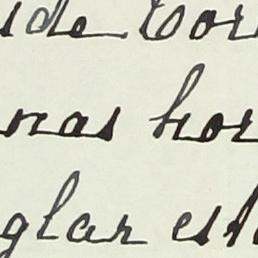 ide Cor
nas hor
glar est